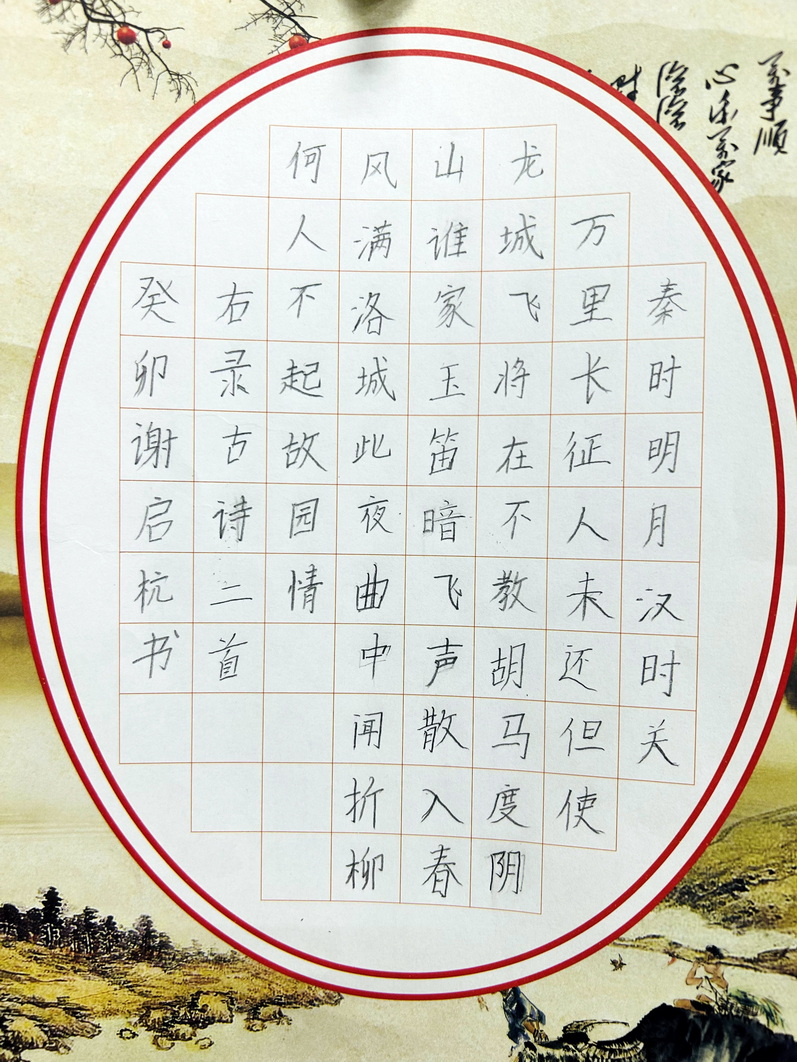 秦时明月汉时关
万里长征人未还但使
龙城飞将在不教胡马度阴
山谁家玉笛暗飞声散入春
风满洛城此夜曲中闻折柳
何人不起故园情
右录古诗二首
癸卯谢启杭书